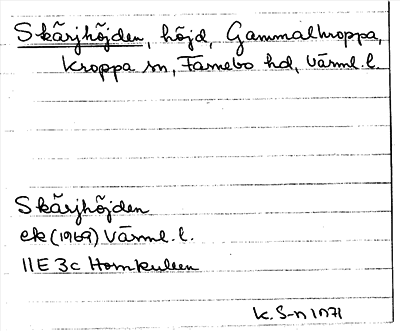 Skärjhöjden, höjd, Gammalkroppa,
Kroppa sn, Färnebo hd, Värml. l.
Skärjhöjden
ek (1969) Värml. l.
11E 3c Hornkullen
K. S-n 1971